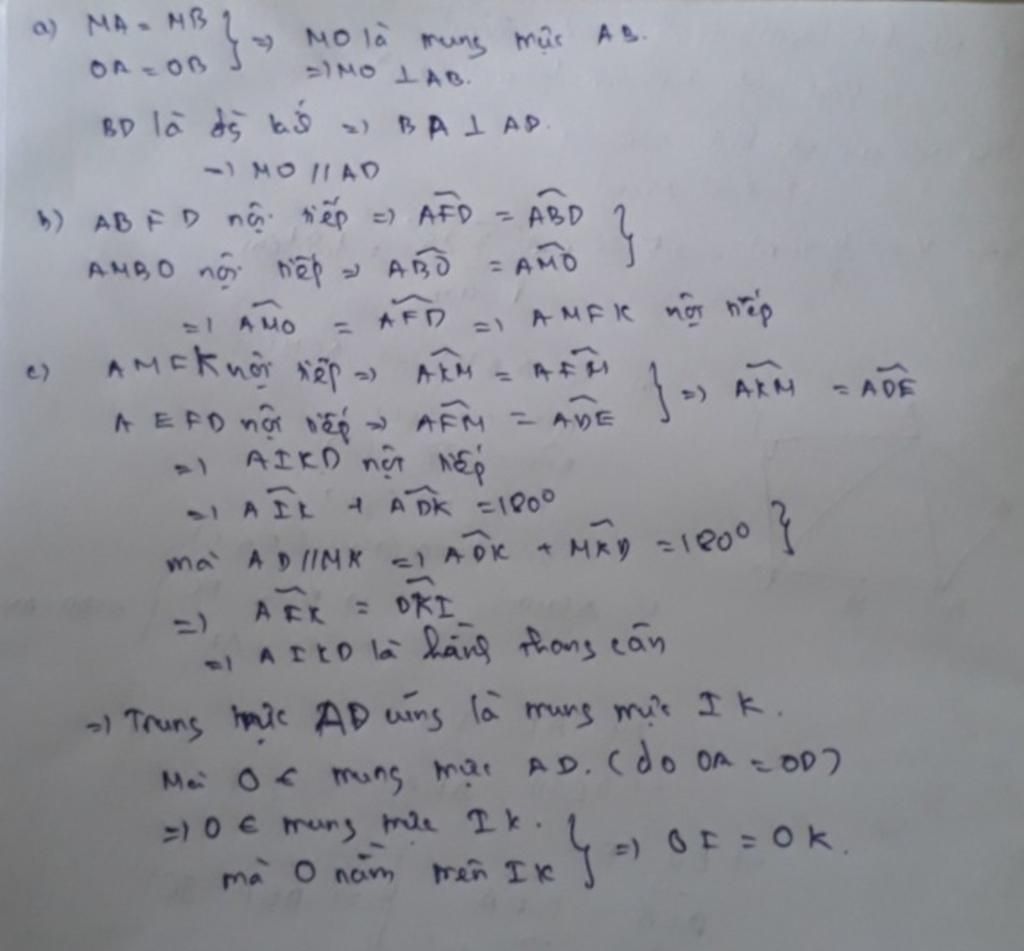 a) MA = MB } => MO là trung trực AB.
OA = OB => MO ⊥ AB.
BD là => BA ⊥ AD.
=> MO // AD
b) ABFD nội tiếp => AFD = ABD }
AMBO nội tiếp => ABO = AMO
=> AMO = AFD => AMFK nội tiếp
c) AMFK nội tiếp => AKM = AFM } => AKM = ADE
AEFD nội tiếp => AFM = ADE
=> AIKD nội tiếp
=> AIK + ADK = 180°
mà AD // MK => ADK + MKD = 180° }
=> = DKI
=> AIKD là hình thang cân
=> Trung trực AD cũng là trung trực IK.
Mà O ∈ trung trực AD. (do OA = OD)
=> O ∈ trung trực IK. } => OI = OK.
mà O nằm trên IK